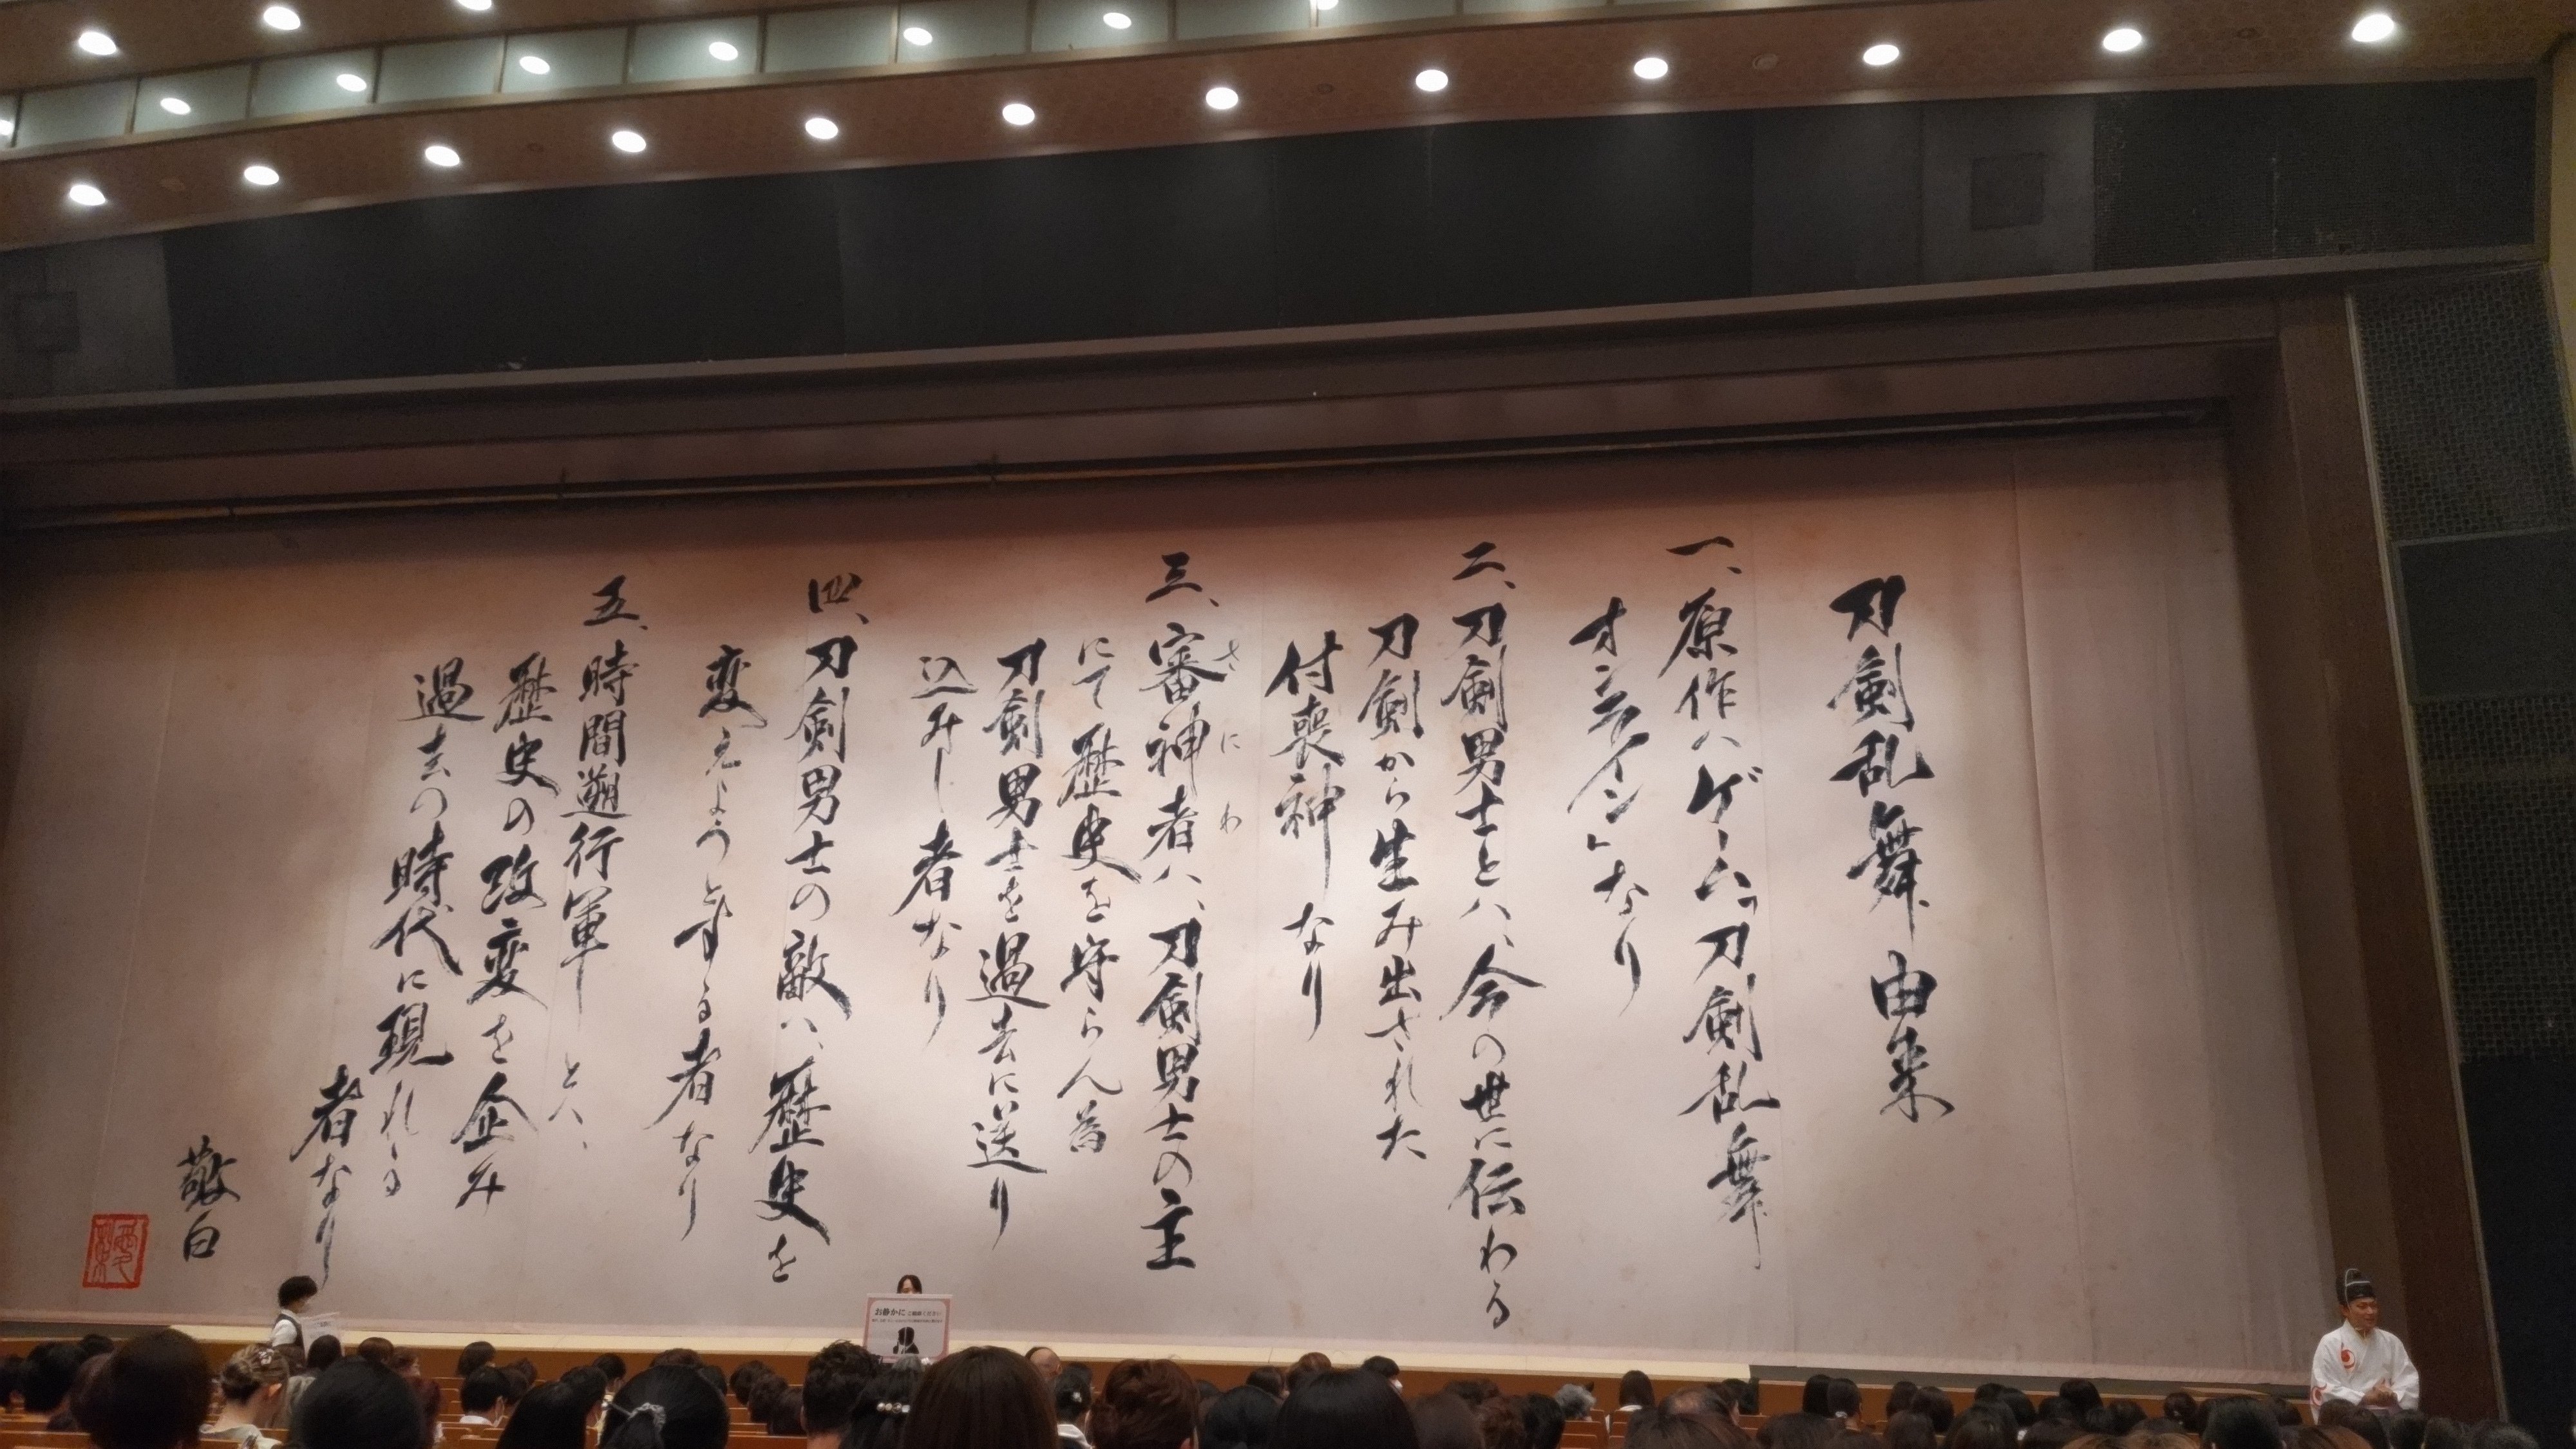 刀剣乱舞 由来
一、原作ハゲーム「刀剣乱舞
オンライン」なり
二、刀剣男士とハ、今の世に伝わる
刀剣から生み出された
付喪神なり
さにわ
三、審神者ハ、刀剣男士の主
にて歴史を守らん為
刀剣男士を過去に送り
込みし者なり
四、刀剣男士の敵ハ、歴史を
変えようとする者なり
五、時間遡行軍とハ、
歴史の改変を企み
過去の時代に現れる
者なり
敬白
お静かに